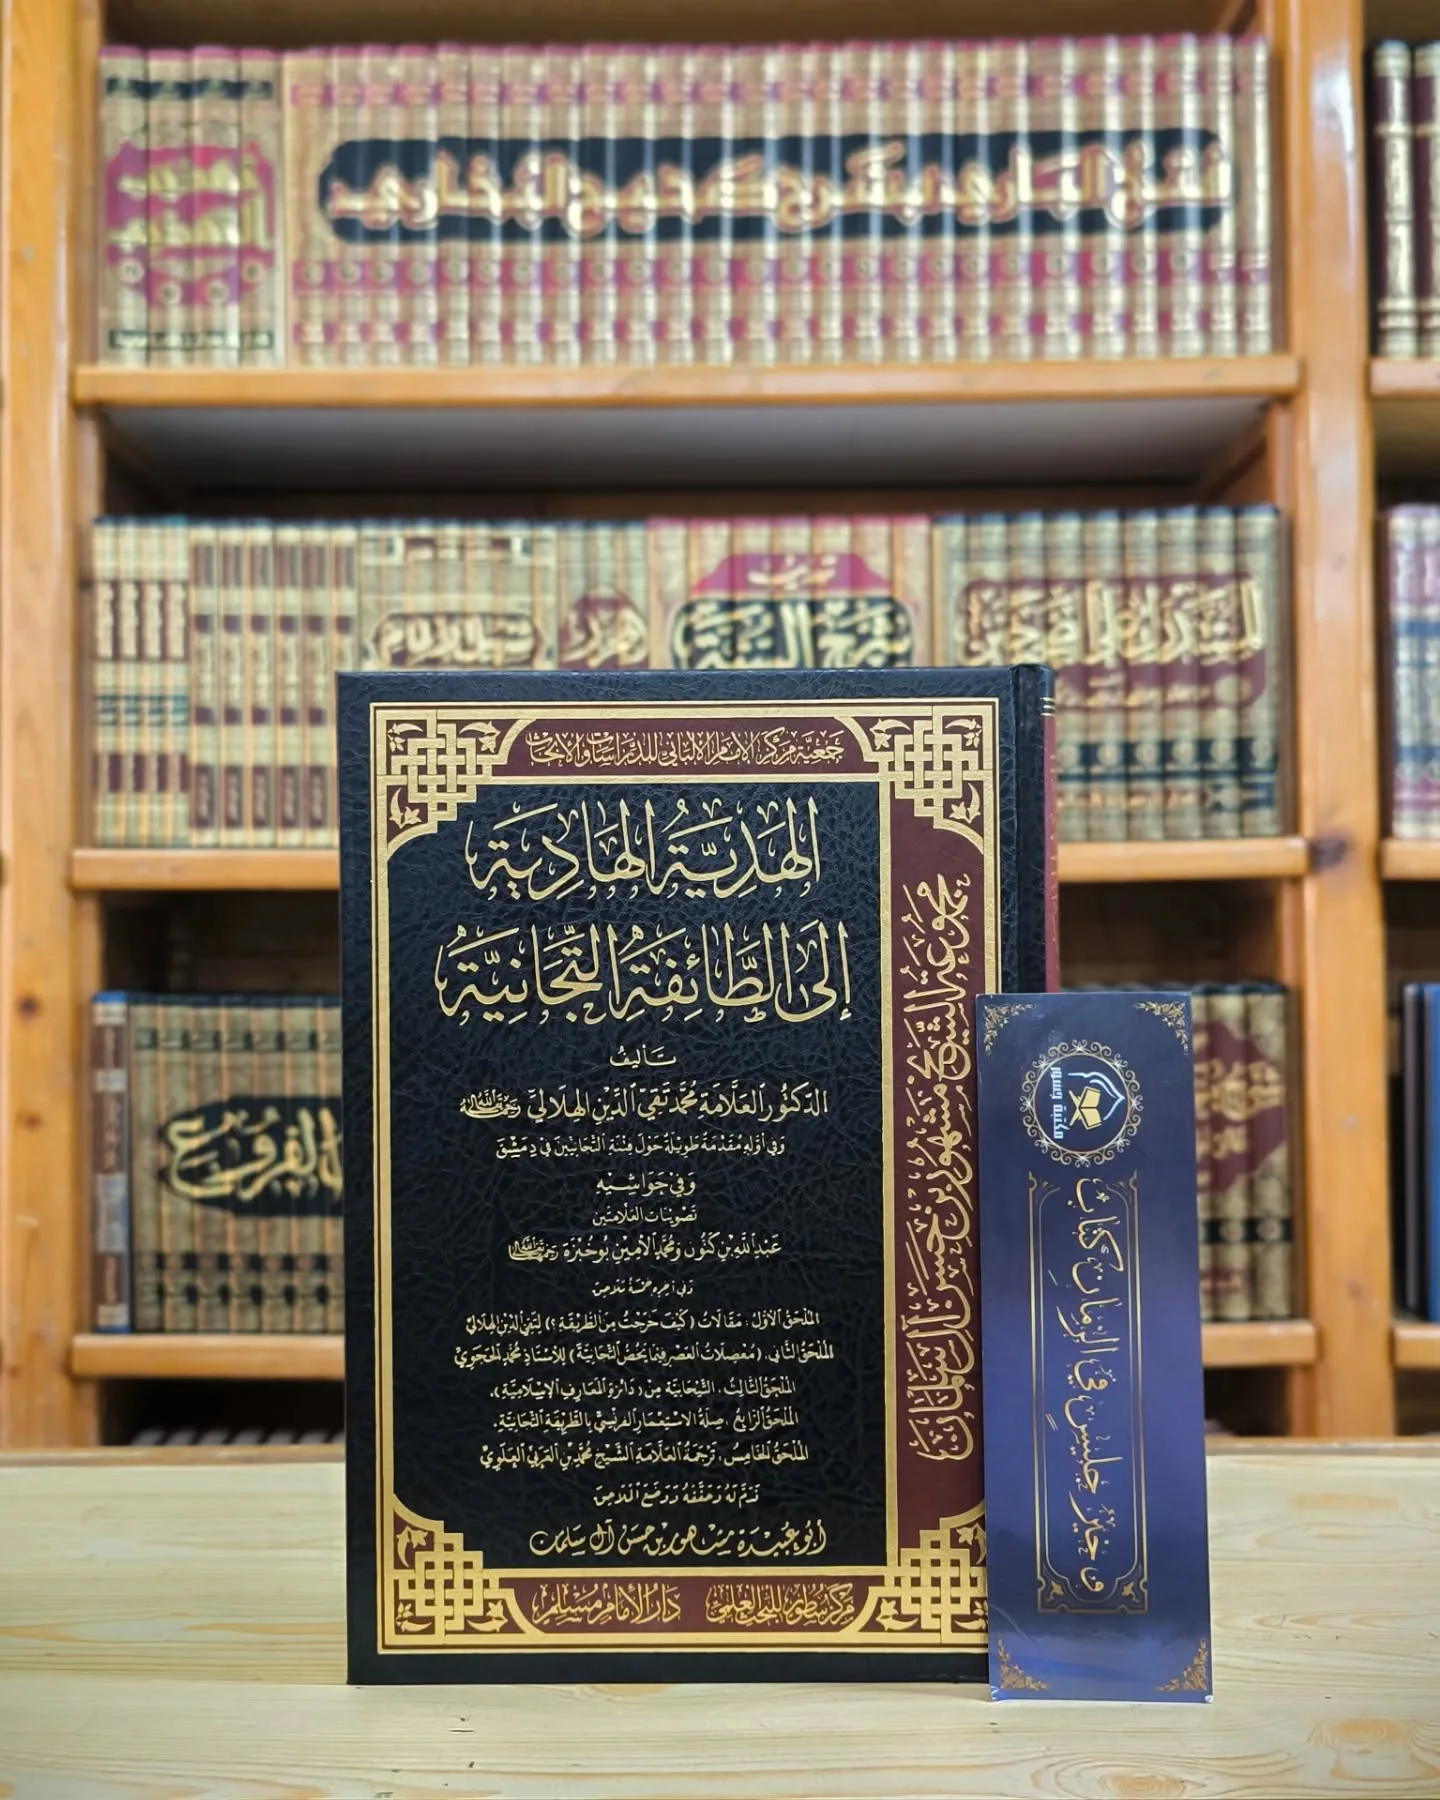 فتح الباري بشرح صحيح البخاري
تهذيب
التهذيب
تهذيب
شرح السنة
المستدرك على الصحيحين
الفروع
جمعية مركز الإمام الألباني للدراسات والأبحاث
الهَدِيَّةُ الهَادِيَة
إلَى الطَّائِفَةِ التِّجَانِيَّة
تَأليفُ
الدّكتُور العَلَّامَة مُحَمَّد تَقِيّ الدِّين الهِلَاليّ رحمه الله
وفي أوّله مُقَدّمَة طَويلَة حَوْلَ فتنَة التّجَانيّينَ في دِمَشْق
وَفي حَوَاشِيْهِ
تَصْويبَات العَلَّامَتَين
عَبْدِ اللهِ بن كَنُّون وَمُحَمَّد الأمِين بُوخُبْزَة رحمهما الله
وفي آخره خمسة ملاحق
المُلحَقُ الأوّلُ: مَقَالَات (كَيْفَ خَرَجْتُ مِنَ الطَّرِيقَةِ؟) لِتَقِيّ الدّين الهِلَاليّ
المُلحَقُ الثَّاني: (مُعْضِلَاتُ العَصْر فِيمَا يَخُصُّ التِّجَانِيَّةَ) للأُسْتَاذ مُحَمَّد الحَجَوِيّ
المُلحَقُ الثَّالِثُ: التِّجَانِيَّة مِنْ (دَائِرَة المَعَارِفِ الإسْلَامِيَّةِ).
المُلحَقُ الرَّابِعُ: صِلَةُ الاسْتِعْمَارِ الفَرَنْسِيّ بِالطَّرِيقَةِ التِّجَانِيَّةِ.
المُلحَقُ الخَامِسُ: تَرْجَمَةُ العَلَّامَةِ الشَّيْخِ مُحَمَّد بْنِ العَرَبِيّ العَلَوِيّ
قَدَّمَ لَهُ وَحَقَّقَهُ وَوَضَعَ المَلَاحِقَ
أبُو عُبَيْدَة مشهور بن حسن آل سلمان
مركز سطور للبحث العلمي
دار الإمام مسلم
مجموعة الشيخ مشهور بن حسن آل سلمان
وخير جليس في الزمان كتاب